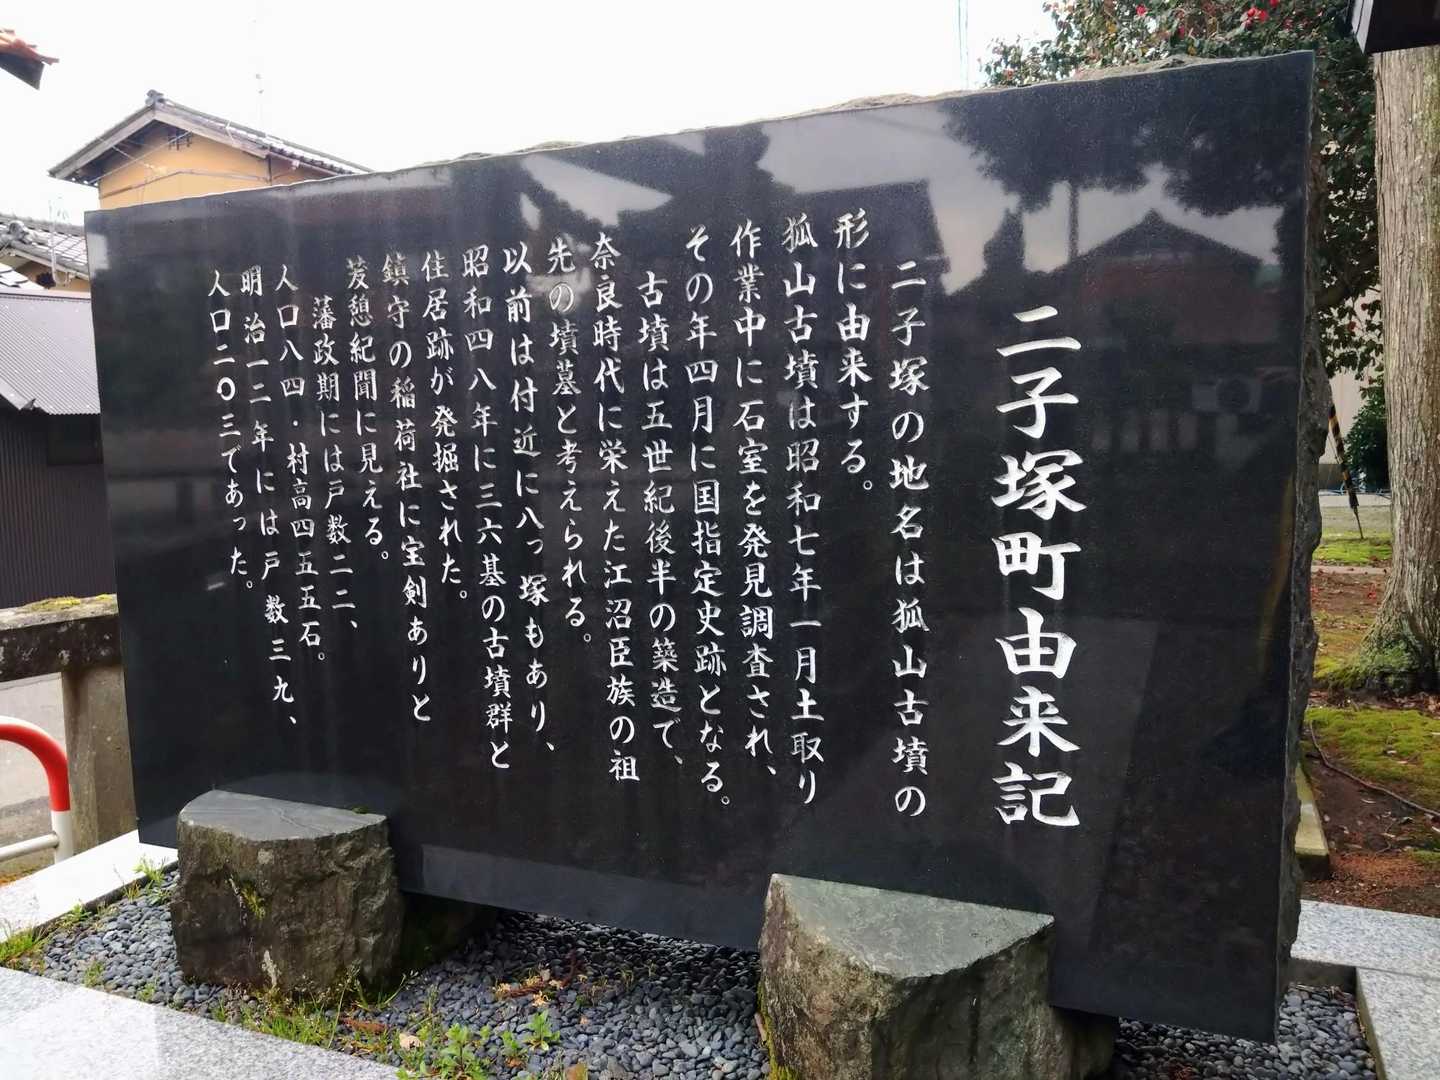 二子塚町由来記
二子塚の地名は狐山古墳の
形に由来する。
狐山古墳は昭和七年一月土取り
作業中に石室を発見調査され、
その年四月に国指定史跡となる。
古墳は五世紀後半の築造で、
奈良時代に栄えた江沼臣族の祖
先の墳墓と考えられる。
以前は付近に八っ塚もあり、
昭和四八年に三六基の古墳群と
住居跡が発掘された。
鎮守の稲荷社に宝剣ありと
茇憩紀聞に見える。
藩政期には戸数二二、
人口八四・村高四五五石。
明治一二年には戸数三九、
人口二〇三であった。